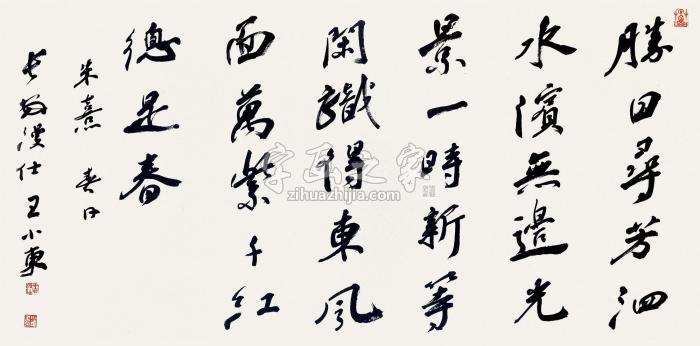 勝日尋芳泗
水濱無邊光
景一時新等
閑識得東風
面萬紫千紅
總是春
朱熹 春日
王小東
字画之家
zihuazhijia.com